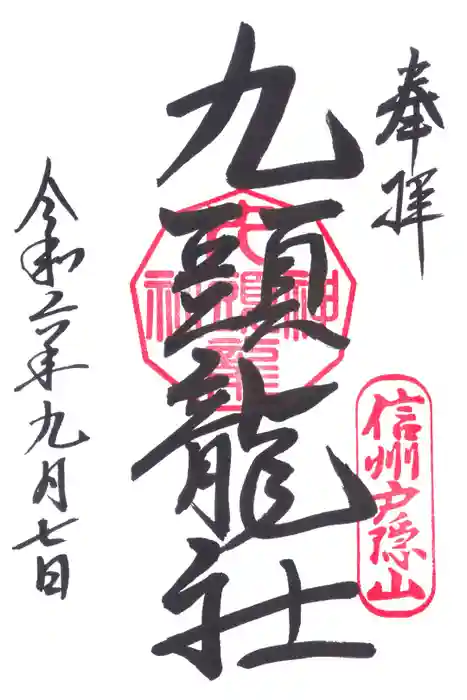 奉拝
信州戸隠山
九頭龍社
令和六年九月七日